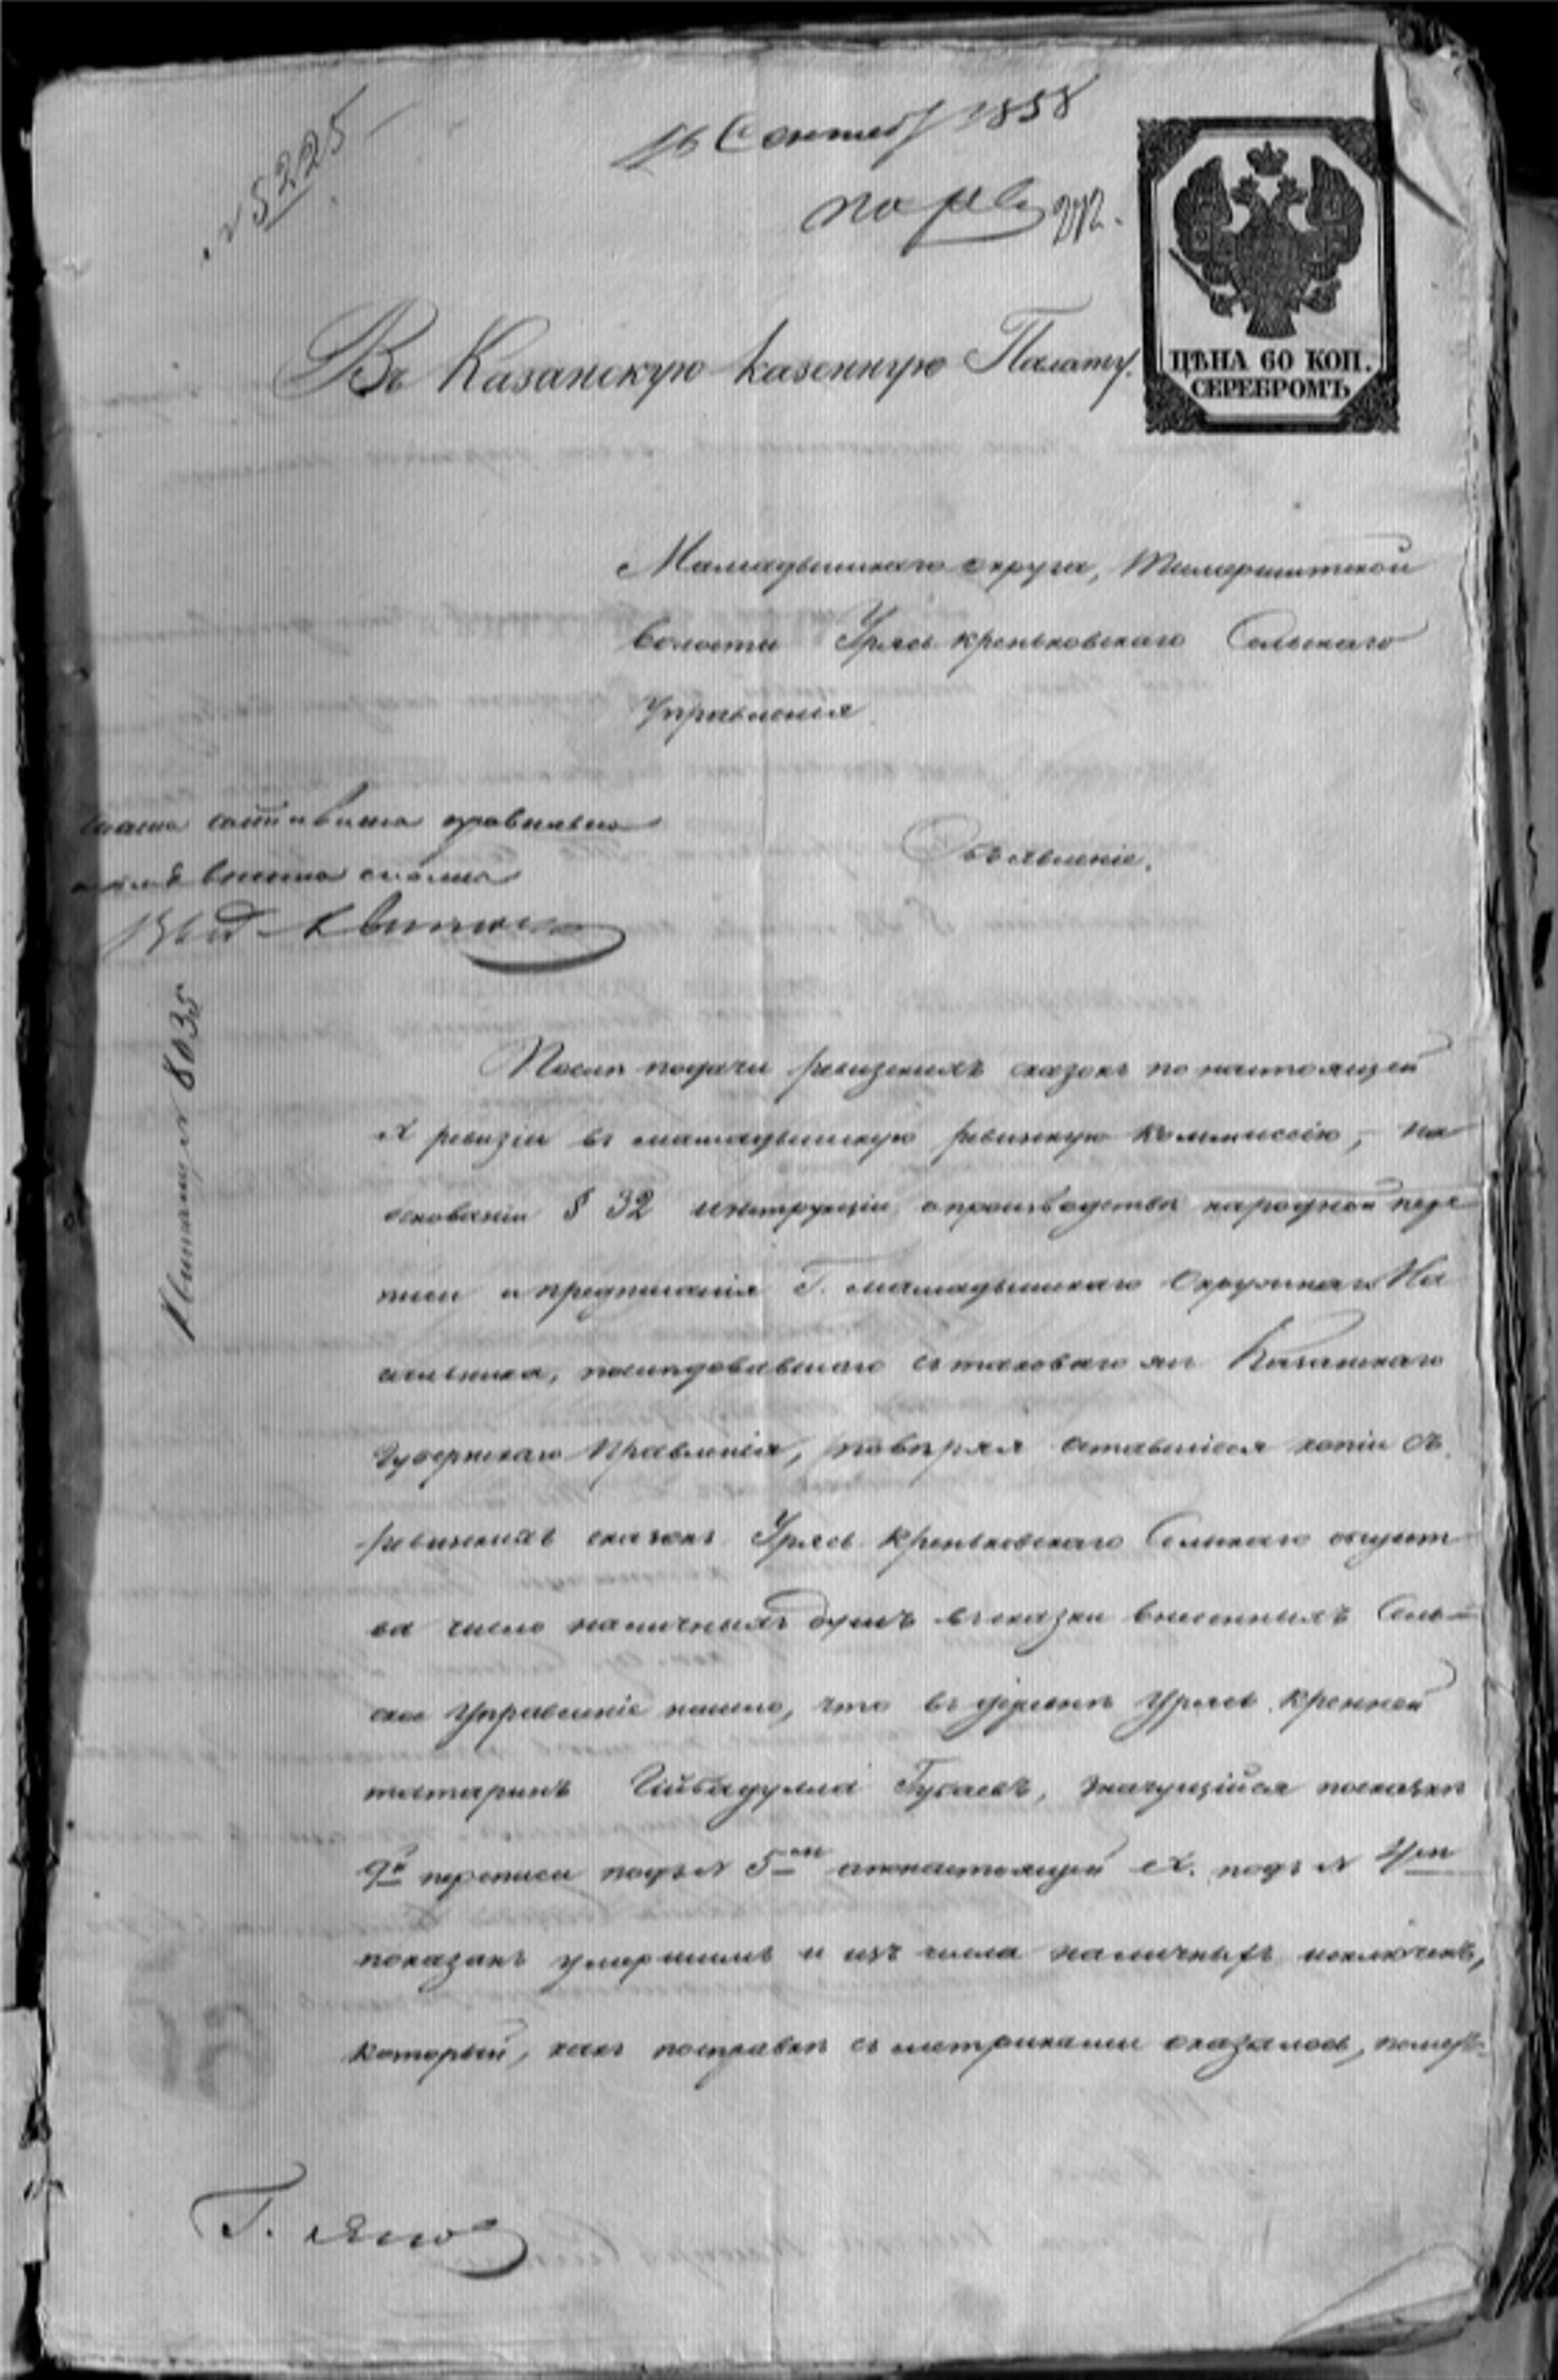 № 5225
16 Сентяб 1858
по рев
Въ Казанскую казенную Палату.
ЦѢНА 60 КОП.
СЕРЕБРОМЪ
Мамадышскаго округа,
Волости Урясь креньковскаго Сельскаго
Управленія
правильно
Объявленіе.
№ 8035
Послѣ подачи ревизскихъ сказокъ по настоящей
X ревизіи въ мамадышскую ревизскую Коммиссію, на
основаніи § 32 инструкціи о производствѣ народной пере
писи и предписанія Г. мамадышскаго Окружнаго На
чальника, послѣдовавшаго съ таковаго же Казанскаго
Губернскаго Правленія, повѣряя оставшіеся копіи съ
ревизскихъ сказокъ Урясь креньковскаго Сельскаго общест
ва число наличныхъ душъ въ сказки внесенныхъ Сель-
ское Управленіе нашло, что въ деревнѣ Урясь
татаринъ Губаевъ, значущійся по сказкѣ
9й переписи подъ № 5м а по настоящей X. подъ № 4м
показанъ умершимъ и изъ числа наличныхъ исключенъ,
который, какъ по справкѣ съ метриками оказалось, померъ